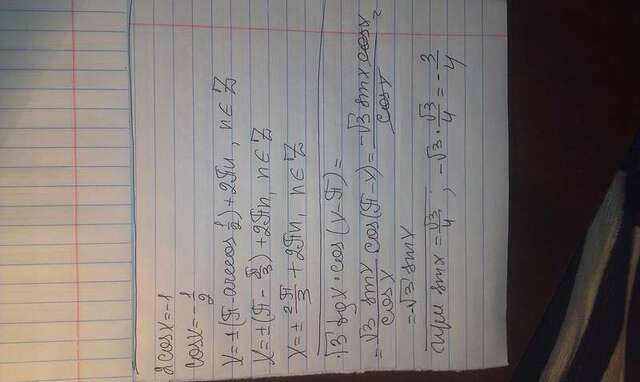 2cosx=-1
cosx=-1/2
x=±(π-arccos 1/2)+2πn, n∈Z
x=±(π-π/3)+2πn, n∈Z
x=±2π/3+2πn, n∈Z
√3 tgx·cos(x-π)=
=√3 sinx/cosx cos(π-x)=-√3 sinx cosx/cosx=
=-√3 sinx
при sinx=√3/4; -√3·√3/4=-3/4